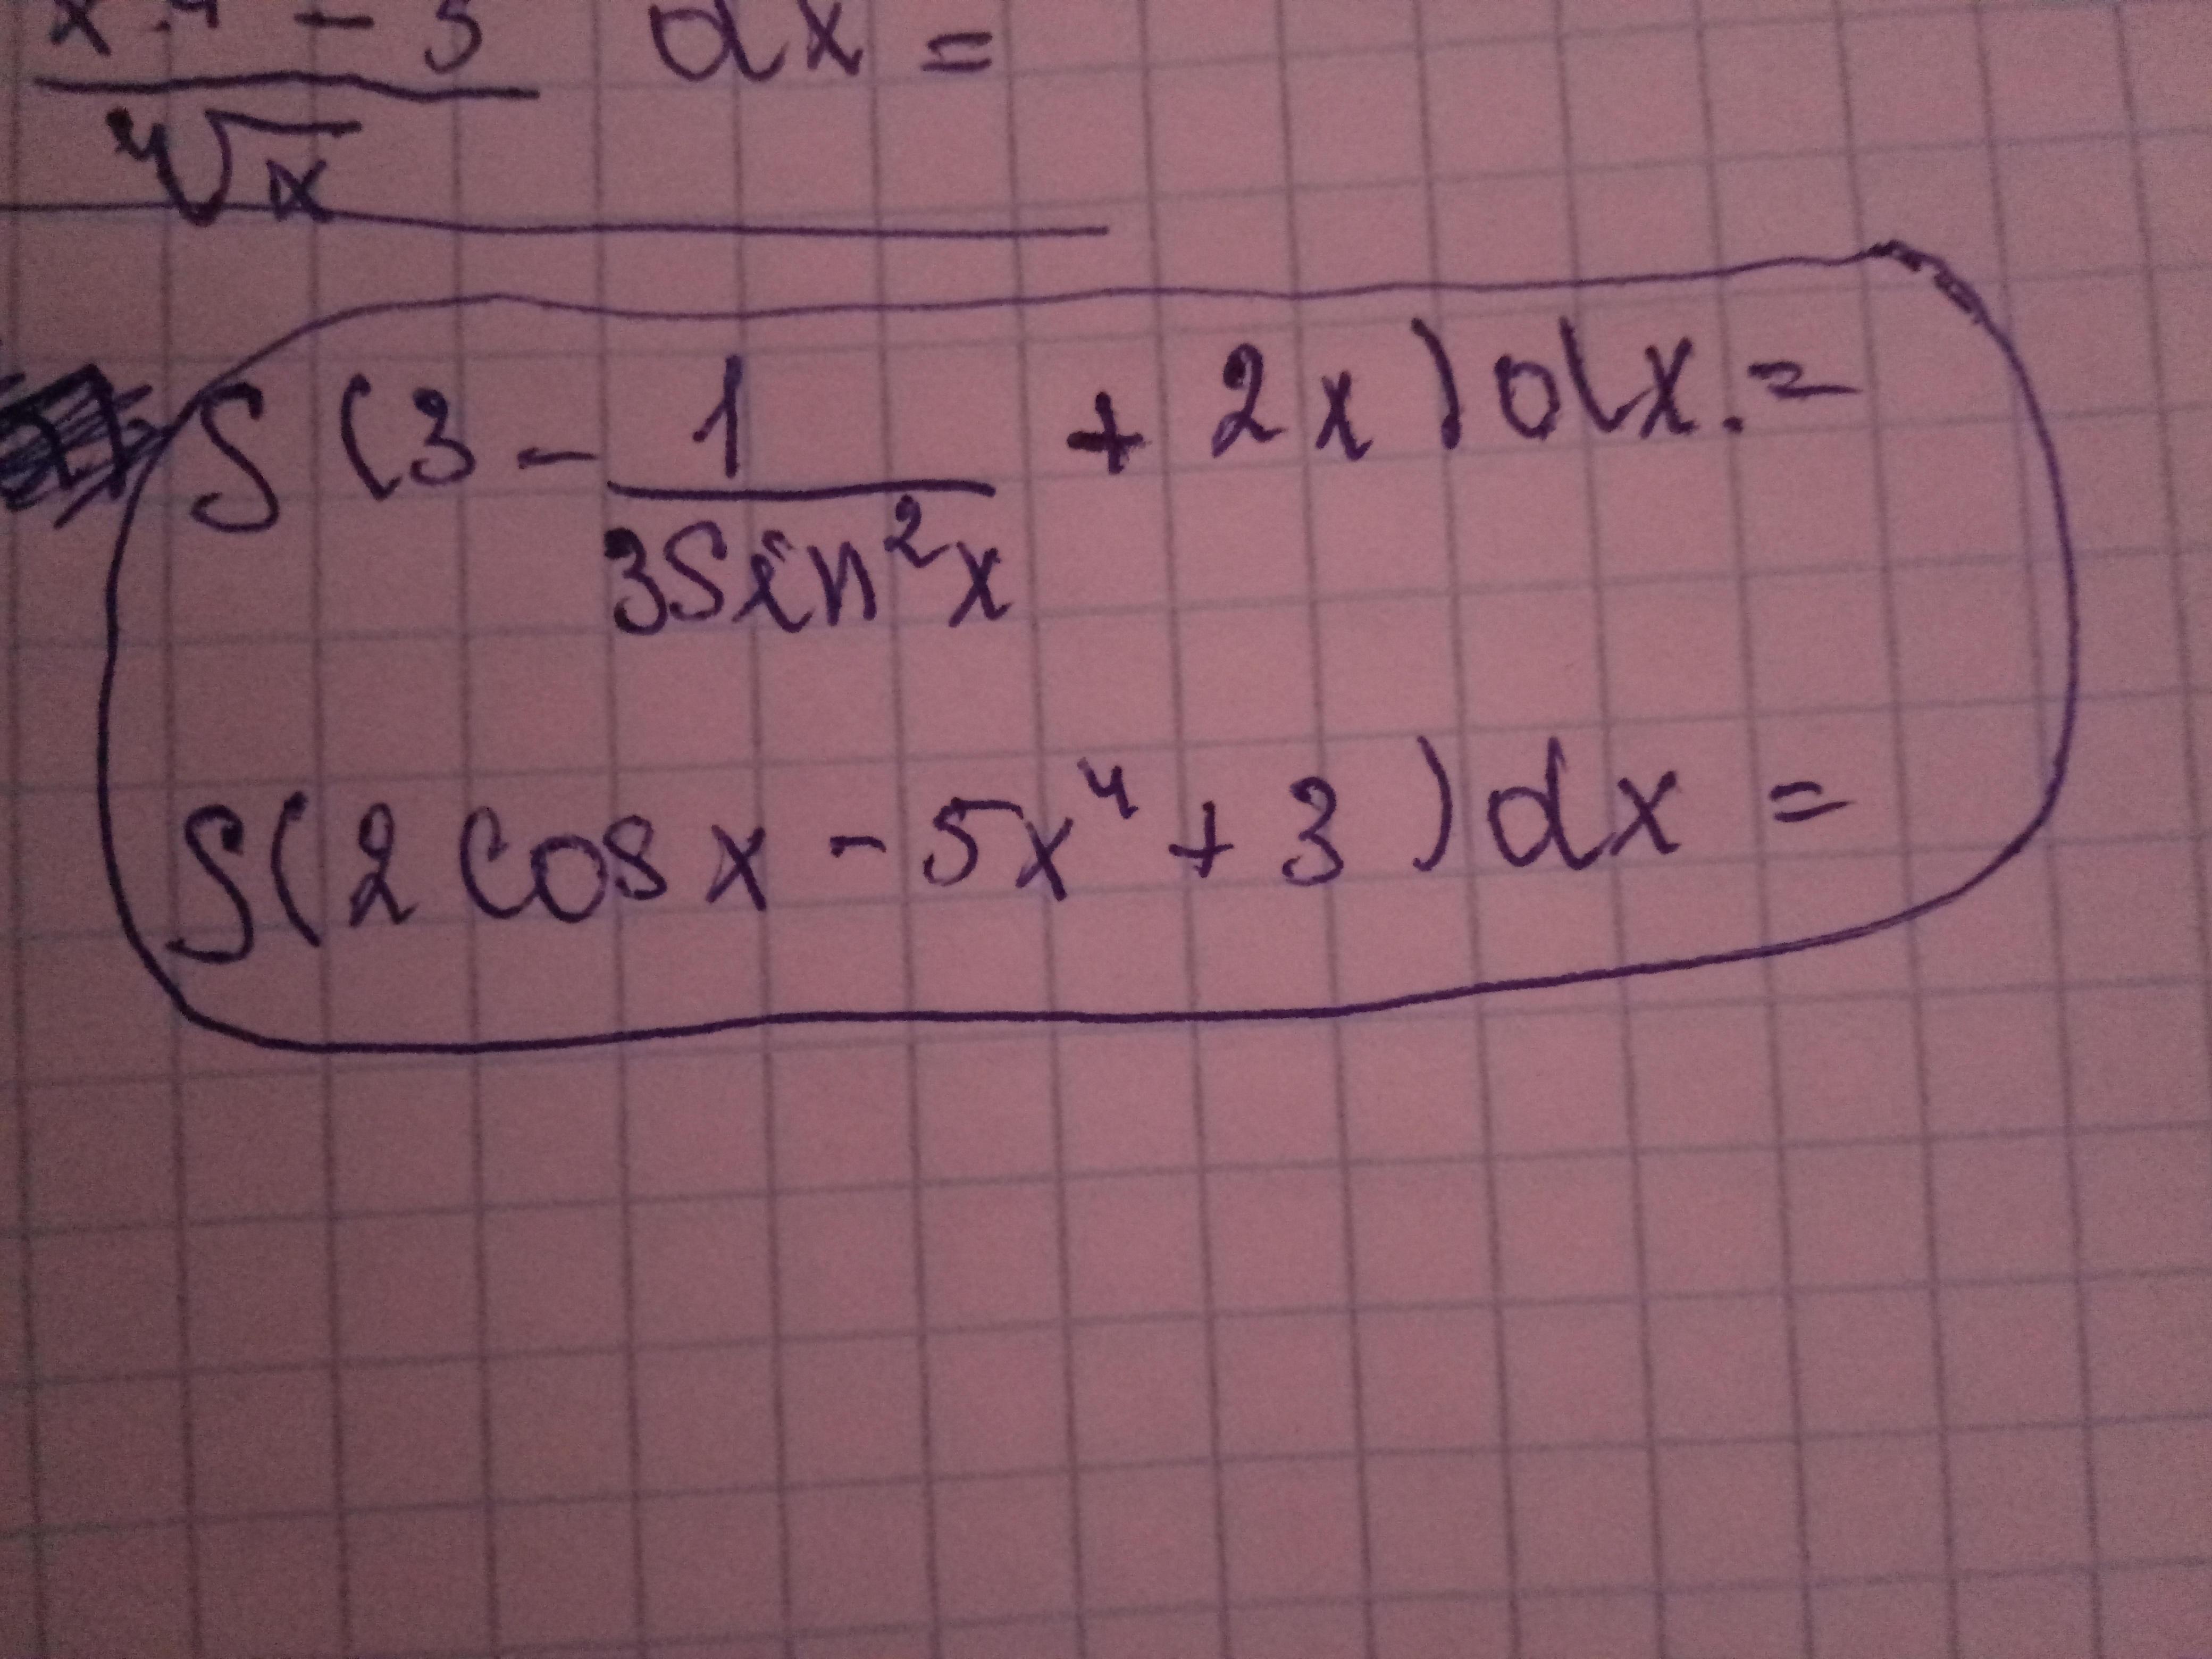 x⁴ - 5 / ⁴√x dx =
∫(3 - 1 / 3sin²x + 2x)dx. =
∫(2cos x - 5x⁴ + 3)dx =